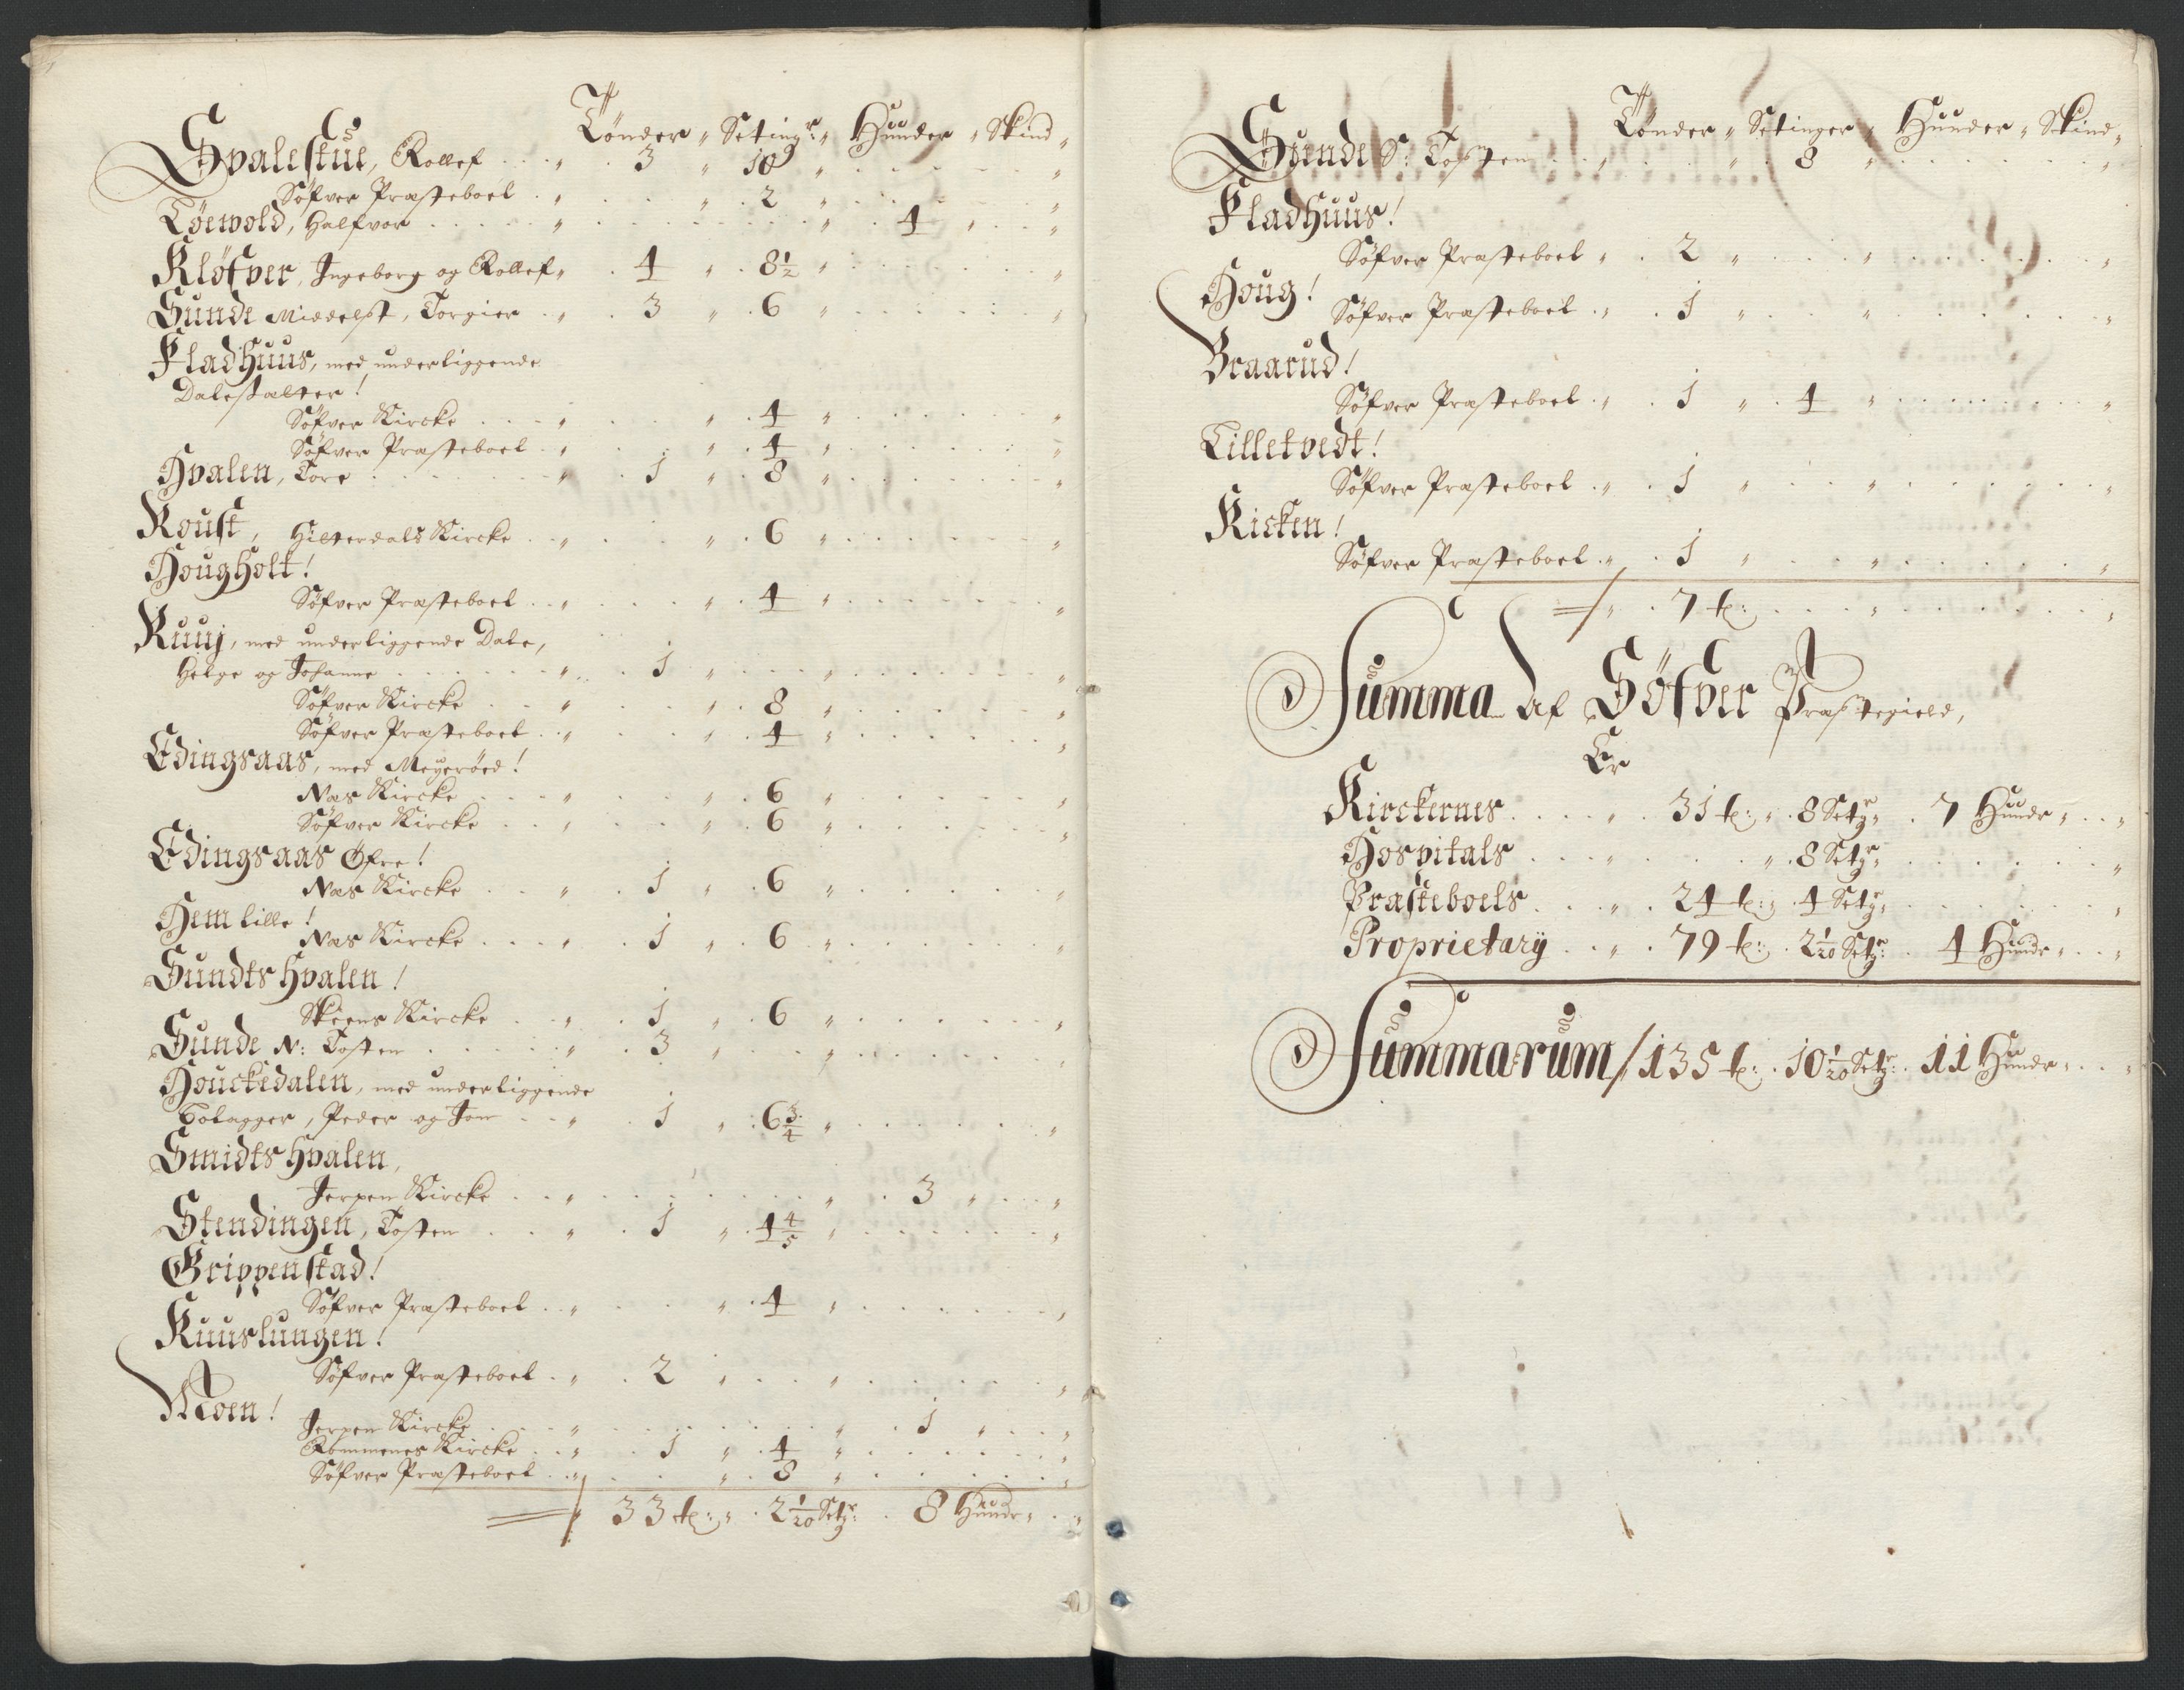 Tønder " Setingr " Hunder " Skind "
Svalestue, Rollef . . . " . 3 " 10 " . . . "
Søfver Præsteboel . " . . . " . 2 " . . . "
Tøevold, Halfvor . . . . " . . . . " . 4 " . . "
Kløfver, Ingeborg og Rollef " . 4 " . 8½ " . . . "
Sunde Middelst, Torgier . " . 3 " . 6 " . . . "
Fladhuus, med underliggende
Dalestalter!
Søfver Kircke . . . " . . . " . 4 " . . . "
Søfver Præsteboel . " . . . " . 4 " . . . "
Hvalen, Tore . . . . " . 1 " . 8 " . . . "
Roust, Hitterdals Kircke . " . . " . 6 " . . . "
Hougholt!
Søfver Præsteboel . . " . . . " . 4 " . . . "
Ruuj, med underliggende Dale,
Helge og Johanne . . . . " . 1 " . . . "
Søfver Kircke . . " . . . " . 8 " . . . "
Søfver Præsteboel . . " . . . " . 4 " . . . "
Edingsaas, med Meyerøed!
Næs Kircke . . . " . . . " . 6 " . . . "
Søfver Kircke . . " . . . " . 6 " . . . "
Edingsaas Øfre!
Næs Kircke . . " . 1 " . 6 " . . . "
Hem lille!
Næs Kircke . . . " . 1 " . 6 " . . . "
Sundts Hvalen!
Skeens Kircke . . " . 1 " . 6 " . . . "
Sunde N: Tosten . . . . " . 3 " . . " . . . "
Houckedalen, med underliggende
Tolagger, Peder og Jon . . " . 1 " : 6¾ " . . . "
Smidts Hvalen,
Jerpen Kircke . . " . . . . " . . 3 " . . "
Stendingen, Tosten . . . " . 1 " . 4⅘ " . . . "
Grippenstad!
Søfver Præsteboel . . " . . . " . 4 " . . . "
Kuuslungen!
Søfver Præsteboel . " . 2 " . . " . . . "
Moen!
Jerpen Kircke . . . " . . . . " . . 1 " . . "
Rommenes Kircke . . " . 1 " . 4 " . . . "
Søfver Præsteboel . . " . . . " . 8 " . . . "
33 t: " . 2 1/20 Setgr: . 8 Hundr " . "
Tønder " Setinger " Hunder " Skind "
Sunde S: Tosten . . " . . . " . 8 " . . . "
Fladhuus!
Søfver Præsteboel " . 2 " . . . " . . . "
Houg!
Søfver Præsteboel . " . 1 " . . . " . . . "
Braarud!
Søfver Præsteboel . " . 1 " . 4 " . . . "
Lilletvedt!
Søfver Præsteboel . " . 1 " . . . " . . . "
Kicken!
Søfver Præsteboel . " . 1 " . . . " . . . "
" . 7 t: . . . " . . . "
Summa Af Søfver Præstegield,
Er
Kirckernes . . . . " . 31 t: " . 8 Setgr " . 7 Hundr " . . "
Hospitals . . . " . . . " . 8 Setgr " . . . "
Præsteboels . . . " . 24 t: " . 4 Setgr " . . . "
Proprietary . . " . 79 t: . 2 1/20 Setgr: . 4 Hundr " . . "
Summarum / 135 t: . 10 1/20 Setgr: . 11 Hundr " . . "